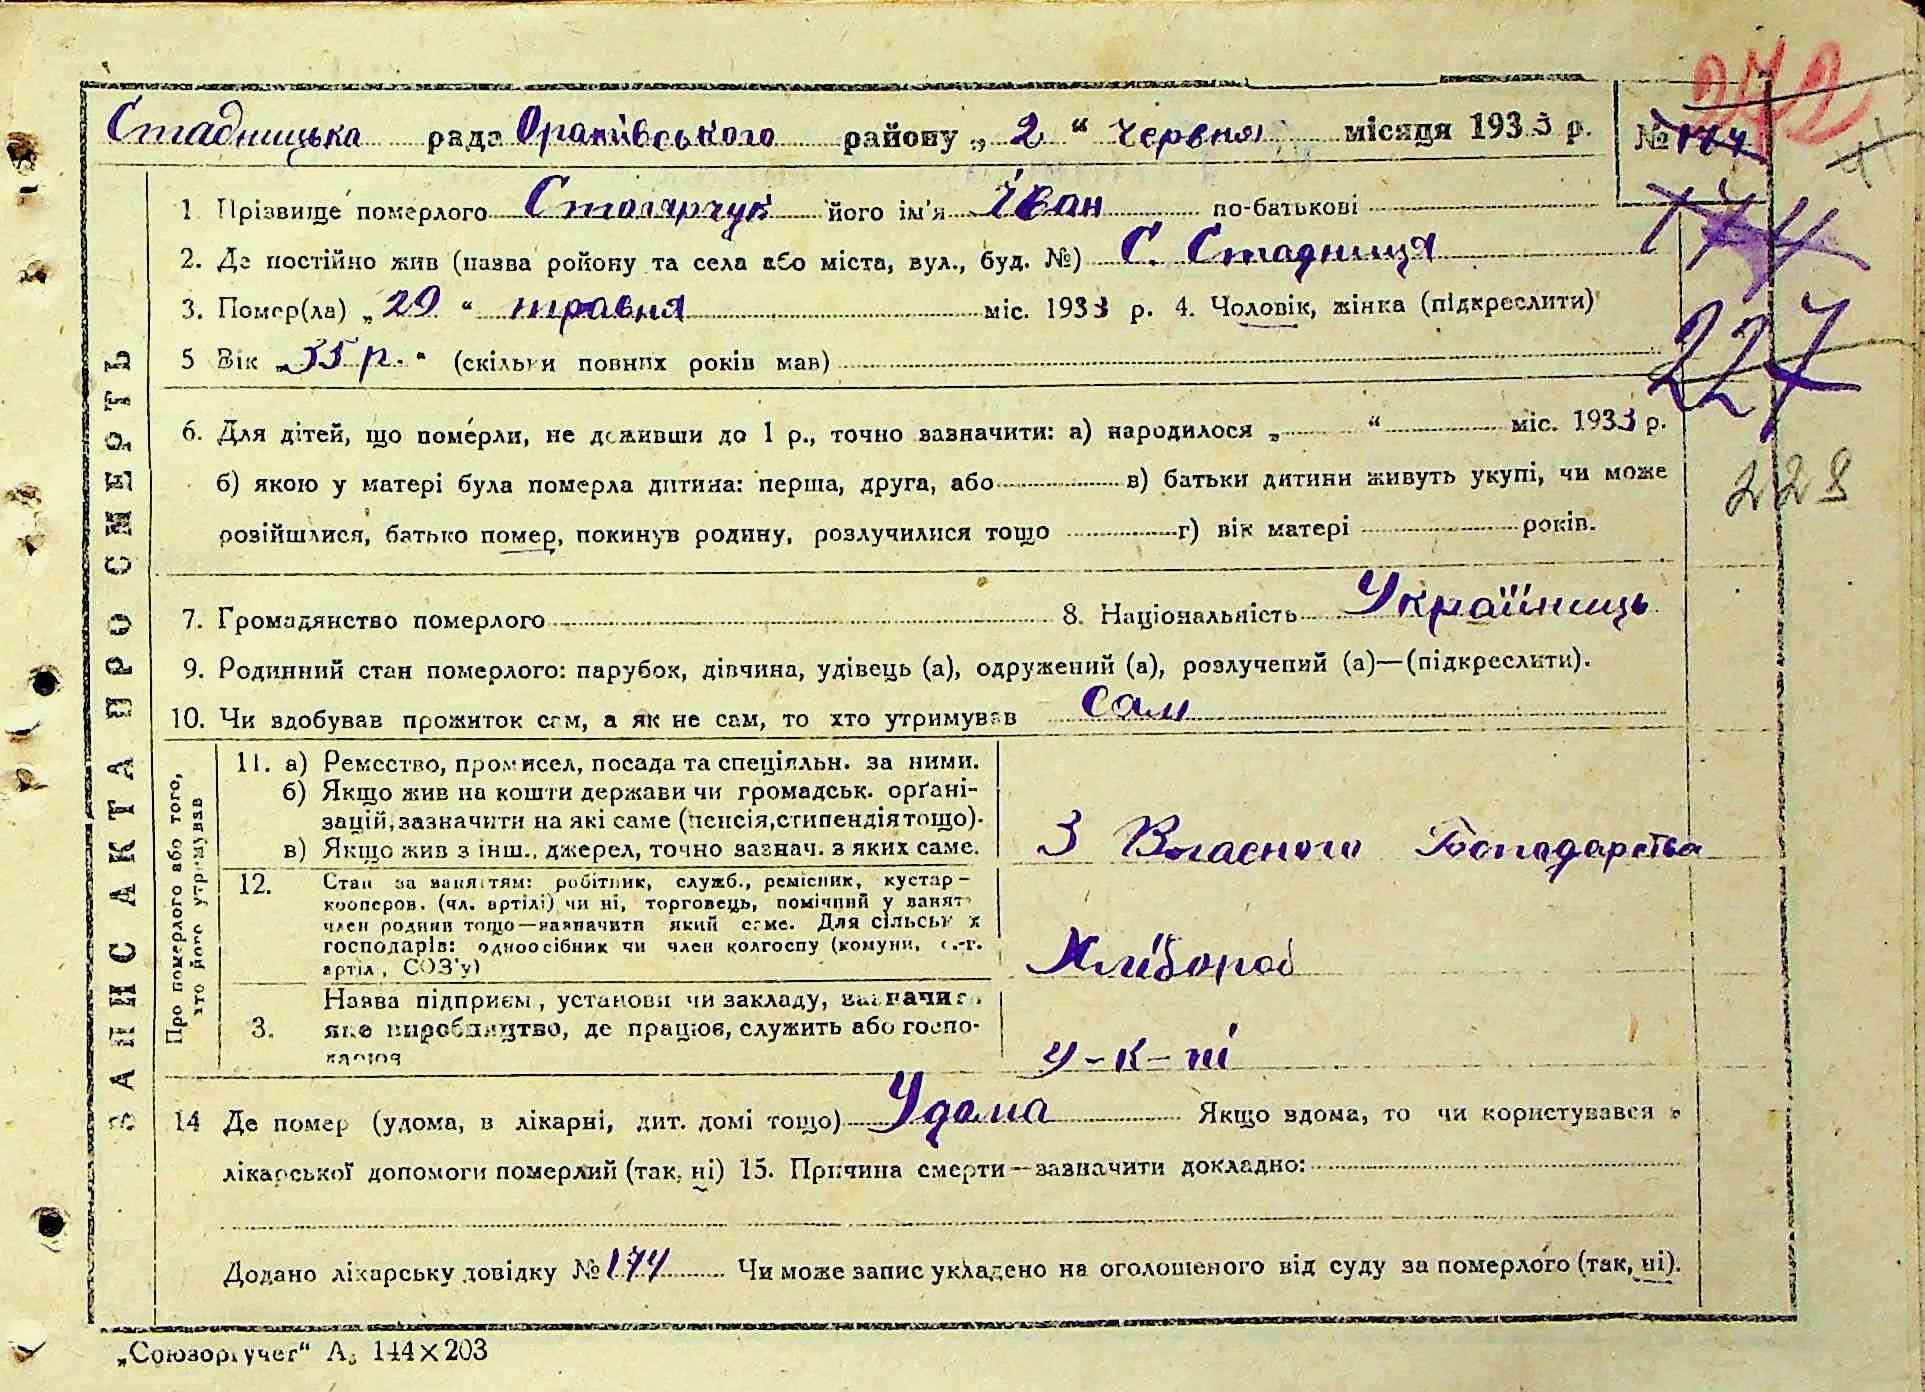 272
Стадницька рада Оратівського району „ 2 “ червня місяця 1933 р. № 174
1 Прізвище померлого Столярчук його ім'я Іван по-батькові
174
2. Де постійно жив (назва району та села або міста, вул., буд. №) С. Стадниця
3. Помер(ла) „ 29 “ травня міс. 1933 р. 4. Чоловік, жінка (підкреслити)
227
5 Вік „ 35 р. “ (скільки повних років мав)
6. Для дітей, що померли, не доживши до 1 р., точно зазначити: а) народилося „ “ міс. 1933 р.
228
б) якою у матері була померла дитина: перша, друга, або в) батьки дитини живуть укупі, чи може
розійшлися, батько помер, покинув родину, розлучилися тощо г) вік матері років.
7. Громадянство померлого 8. Національність Українець
9. Родинний стан померлого: парубок, дівчина, удівець (а), одружений (а), розлучений (а)—(підкреслити).
10. Чи здобував прожиток сам, а як не сам, то хто утримував сам
11. а) Ремество, промисел, посада та спеціяльн. за ними.
б) Якщо жив на кошти держави чи громадськ. орґані-
зацій, зазначити на які саме (пенсія, стипендія тощо).
в) Якщо жив з інш., джерел, точно зазнач. з яких саме.
З Власного Господарства
12. Стан за заняттям: робітник, служб., ремісник, кустар—
кооперов. (чл. артілі) чи ні, торговець, помічний у занят
член родини тощо—зазначити який саме. Для сільськ х
господарів: одноосібник чи член колгоспу (комуни, с.-г.
артіл, СОЗ'у)
Хлібороб
3. Назва підприєм, установи чи закладу, зазначит
яке виробництво, де працює, служить або госпо-
у-к-ні
14 Де помер (удома, в лікарні, дит. домі тощо) Удома Якщо вдома, то чи користувався з
лікарської допомоги померлий (так, ні) 15. Причина смерти—зазначити докладно:
Додано лікарську довідку № 174 Чи може запис укладено на оголошеного від суду за померлого (так, ні).
ЗАПИС АКТА ПРО СМЕРТЬ
Про померлого або того,
хто його утримував
„Союзоргучет“ А5 144×203